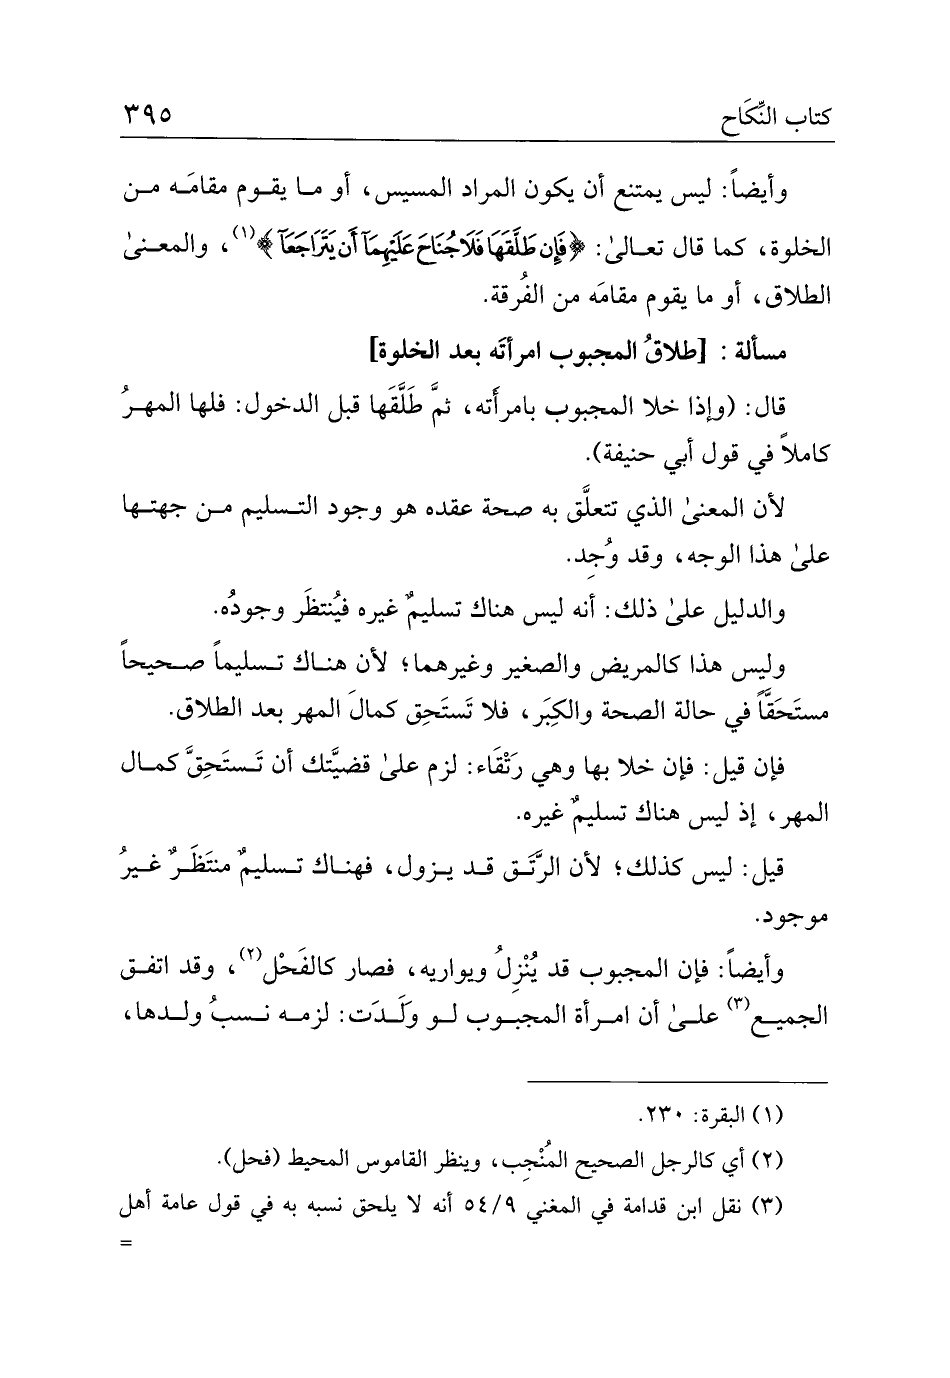 كتاب النِّكَاح ٣٩٥
وأيضاً: ليس يمتنع أن يكون المراد المسيس، أو ما يقوم مقامَه من
الخلوة، كما قال تعالىٰ: ﴿فَإِن طَلَّقَهَا فَلَا جُنَاحَ عَلَيْهِمَآ أَن يَتَرَاجَعَآ﴾(١)، والمعنىٰ
الطلاق، أو ما يقوم مقامَه من الفُرقة.
مسألة : [طلاقُ المجبوب امرأتَه بعد الخلوة]
قال: (وإذا خلا المجبوب بامرأته، ثمَّ طَلَّقَها قبل الدخول: فلها المهرُ
كاملاً في قول أبي حنيفة).
لأن المعنىٰ الذي تتعلَّق به صحة عقده هو وجود التسليم من جهتها
علىٰ هذا الوجه، وقد وُجِد.
والدليل علىٰ ذلك: أنه ليس هناك تسليمٌ غيره فيُنتظَر وجودُه.
وليس هذا كالمريض والصغير وغيرهما؛ لأن هناك تسليماً صحيحاً
مستَحَقَّاً في حالة الصحة والكِبَر، فلا تَستَحِق كمالَ المهر بعد الطلاق.
فإن قيل: فإن خلا بها وهي رَتْقَاء: لزم علىٰ قضيَّتك أن تَستَحِقَّ كمال
المهر، إذ ليس هناك تسليمٌ غيره.
قيل: ليس كذلك؛ لأن الرَّتَق قد يزول، فهناك تسليمٌ منتَظَرٌ غيرُ
موجود.
وأيضاً: فإن المجبوب قد يُنْزِلُ ويواريه، فصار كالفَحْل(٢)، وقد اتفق
الجميع(٣) علىٰ أن امرأة المجبوب لو ولَدَت: لزمه نسبُ ولدها،
(١) البقرة: ٢٣٠.
(٢) أي كالرجل الصحيح المُنْجِب، وينظر القاموس المحيط (فحل).
(٣) نقل ابن قدامة في المغني ٥٤/٩ أنه لا يلحق نسبه به في قول عامة أهل
=